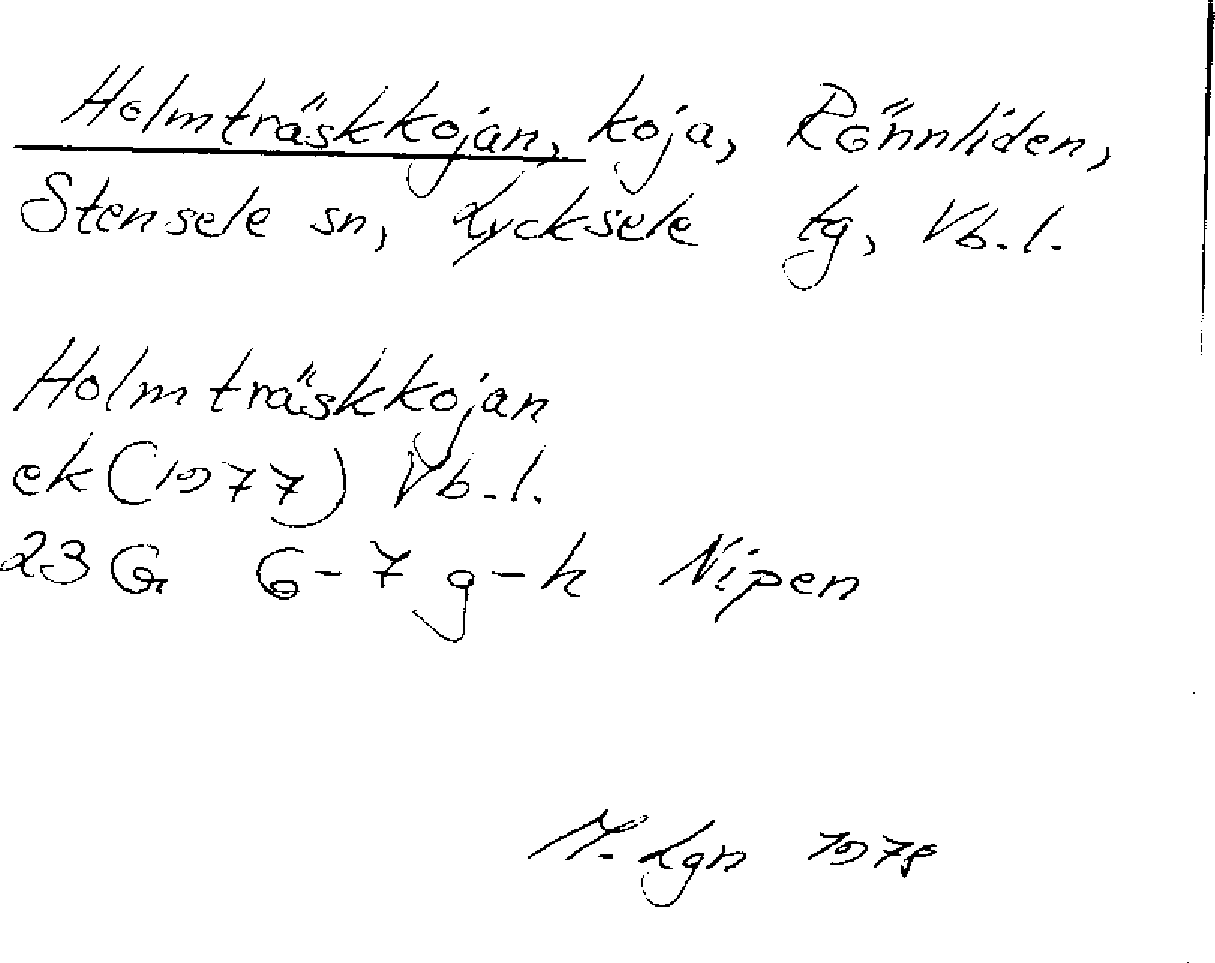 Holmträskkojan, koja, Rönnliden,
Stensele sn, Lycksele tg, Vb. l.
Holmträskkojan
ek (1977) Vb. l.
23 G 6-7 g-h Nipen
M. Lgn 1978